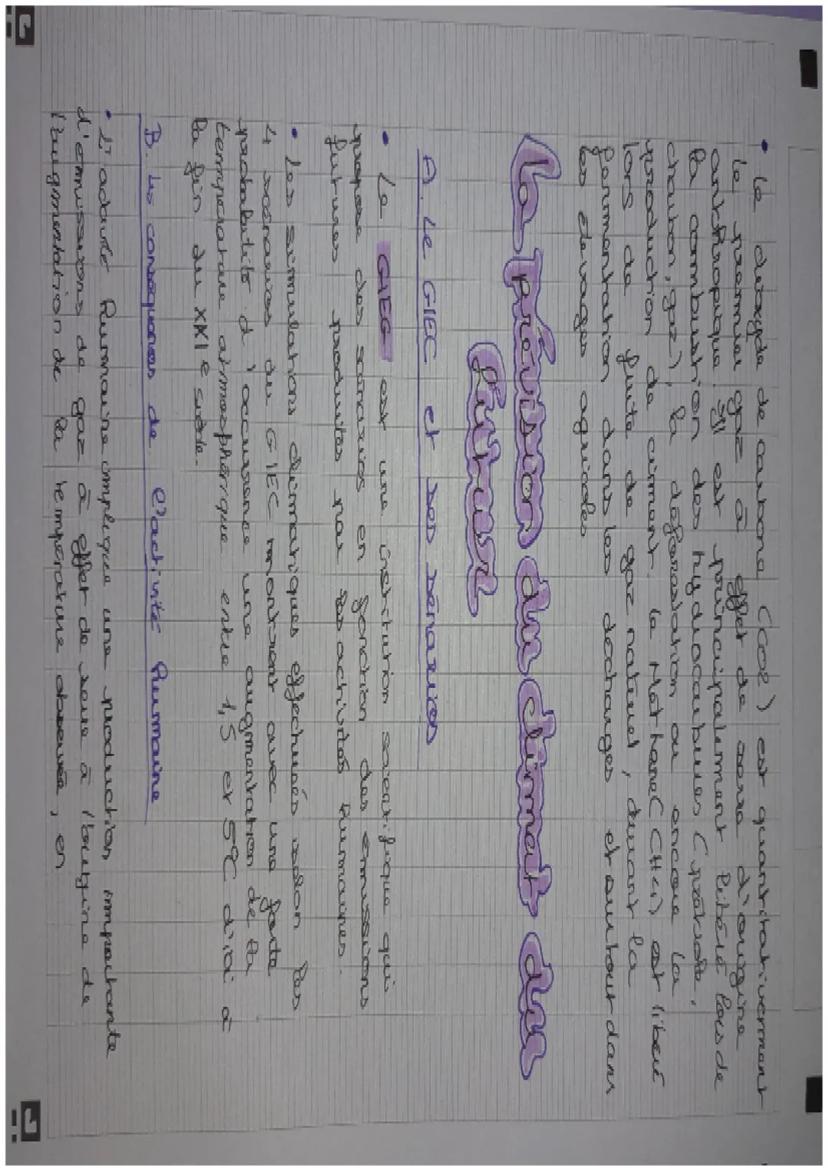 • Le dioxyde de carbone (CO2) est quantitativement
le premier gaz à effet de serre d'origine
anthropique. Il est principalement libéré lors de
la combustion des hydrocarbures (pétrole,
charbon, gaz), la déforestation ou encore la
production de ciment. Le Méthane (CH4) est libéré
lors de fuite de gaz naturel, durant la
fermentation dans les décharges et surtout dans
les élevages agricoles
La prévision du climat du
futur
A. Le GIEC et ses scénarios
• Le GIEC est une institution scientifique qui
propose des scénarios en fonction des émissions
futures produites par les activités humaines.
• Les simulations climatiques effectuées selon les
4 scénarios du GIEC montrent avec une forte
probabilité d'occurence une augmentation de la
température atmosphérique entre 1,5 et 5°C d'ici à
la fin du XXIe siècle.
B. Les conséquences de l'activité humaine
• L'activité humaine implique une production importante
d'émissions de gaz à effet de serre à l'origine de
l'augmentation de la température observée, en